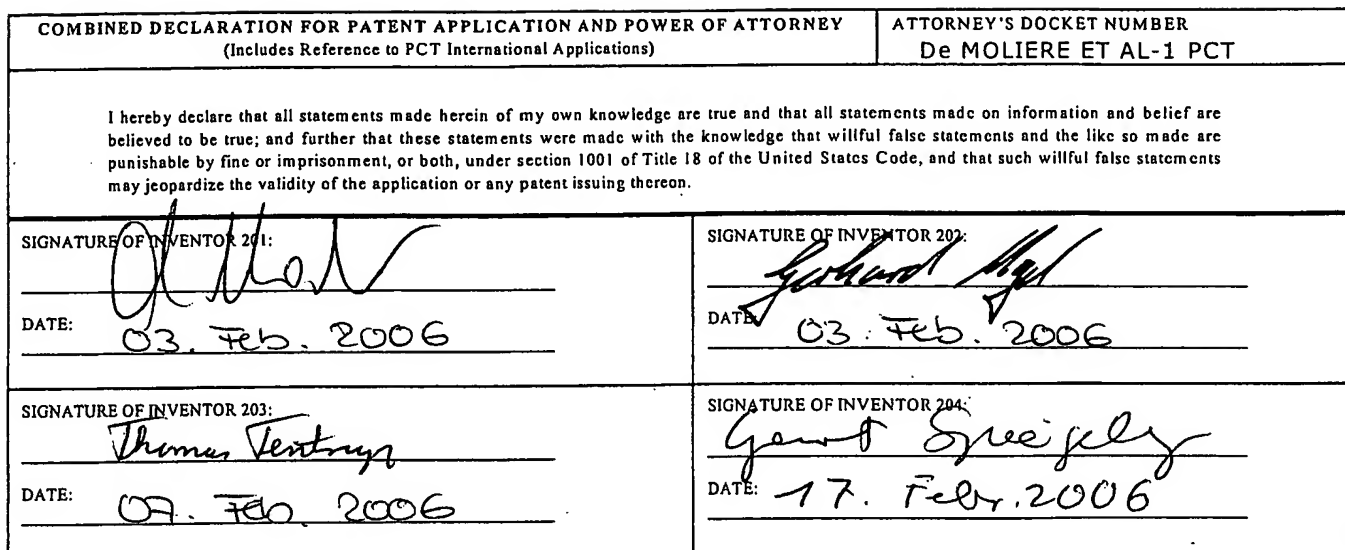 COMBINED DECLARATION FOR PATENT APPLICATION AND POWER OF ATTORNEY
(Includes Reference to PCT International Applications)
ATTORNEY'S DOCKET NUMBER
De MOLIERE ET AL-1 PCT
I hereby declare that all statements made herein of my own knowledge are true and that all statements made on information and belief are
believed to be true; and further that these statements were made with the knowledge that willful false statements and the like so made are
punishable by fine or imprisonment, or both, under section 1001 of Title 18 of the United States Code, and that such willful false statements
may jeopardize the validity of the application or any patent issuing thereon.
SIGNATURE OF INVENTOR 201:
DATE: 03. Feb. 2006
SIGNATURE OF INVENTOR 202:
Gerhard
DATE: 03. Feb. 2006
SIGNATURE OF INVENTOR 203:
Thomas
DATE: 07. Feb. 2006
SIGNATURE OF INVENTOR 204:
DATE: 17. Febr. 2006